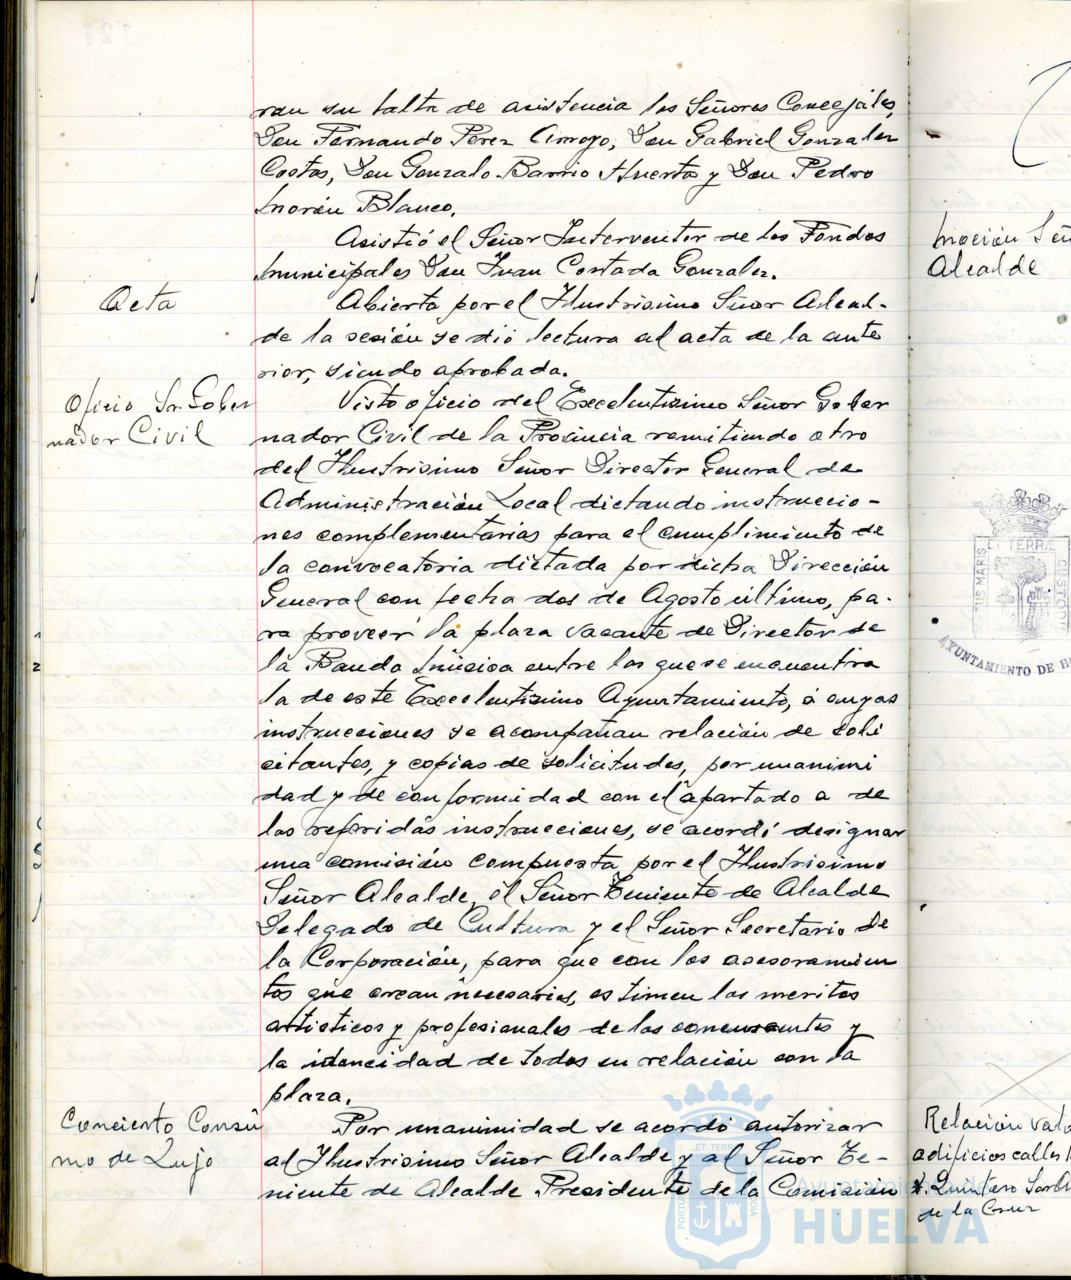 ran su falta de asistencia los Señores Concejales,
Don Fernando Perez Arroyo, Don Gabriel Gonzalez
Costas, Don Gonzalo Barrio Huerta y Don Pedro
Morón Blanco.
Asistió el Señor Interventor de los Fondos
Municipales Don Juan Contada Gonzalez.
Acta
Abierta por el Ilustrisimo Señor Alcal-
de la sesión se dió lectura al acta de la ante
rior, siendo aprobada.
Oficio Sr. Gober
nador Civil
Visto oficio del Excelentisimo Señor Gober
nador Civil de la Provincia remitiendo otro
del Ilustrisimo Señor Director General de
Administración Local dictando instruccio-
nes complementarias para el cumplimiento de
la convocatoria dictada por dicha Dirección
General con fecha dos de Agosto último, pa-
ra proveer la plaza vacante de Director de
la Banda Música entre las que se encuentra
la de este Excelentisimo Ayuntamiento, á cuyas
instrucciones se acompañan relación de soli
citantes, y copias de solicitudes, por unanimi
dad y de conformidad con el apartado a de
las referidas instrucciones, se acordó designar
una comisión compuesta por el Ilustrisimo
Señor Alcalde, el Señor Teniente de Alcalde
Delegado de Cultura y el Señor Secretario de
la Corporación, para que con los asesoramien
tos que crean necesarios, estimen los meritos
artisticos y profesionales de los concursantes y
la idoneidad de todos en relación con la
plaza.
Concierto Consu
mo de Lujo
Por unanimidad se acordó autorizar
al Ilustrisimo Señor Alcalde y al Señor Te-
niente de Alcalde Presidente de la Comisión
Moción Señ
Alcalde
AYUNTAMIENTO DE HU
Relación valo
edificios calles
de la Cruz
Ayuntamiento de
HUELVA